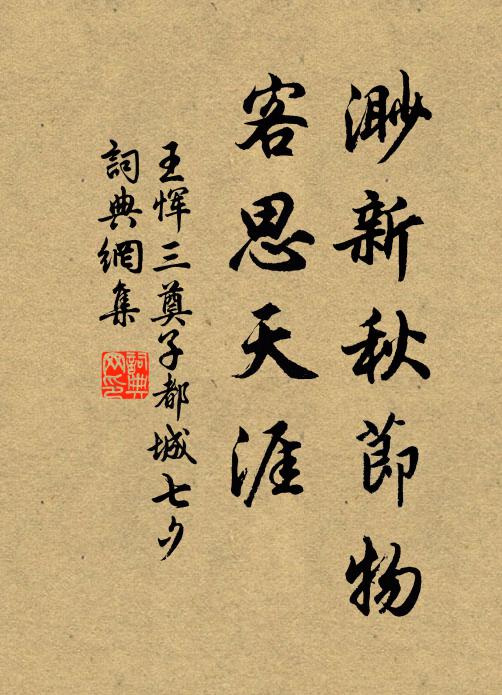 渺新秋節物
客思天涯
王惲三奠子都城七夕
詞典網集
詞典网印